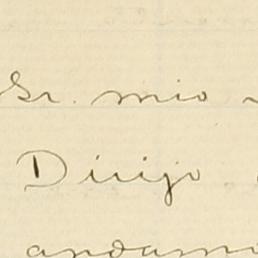 Sr. mio
Dirijo
andamo